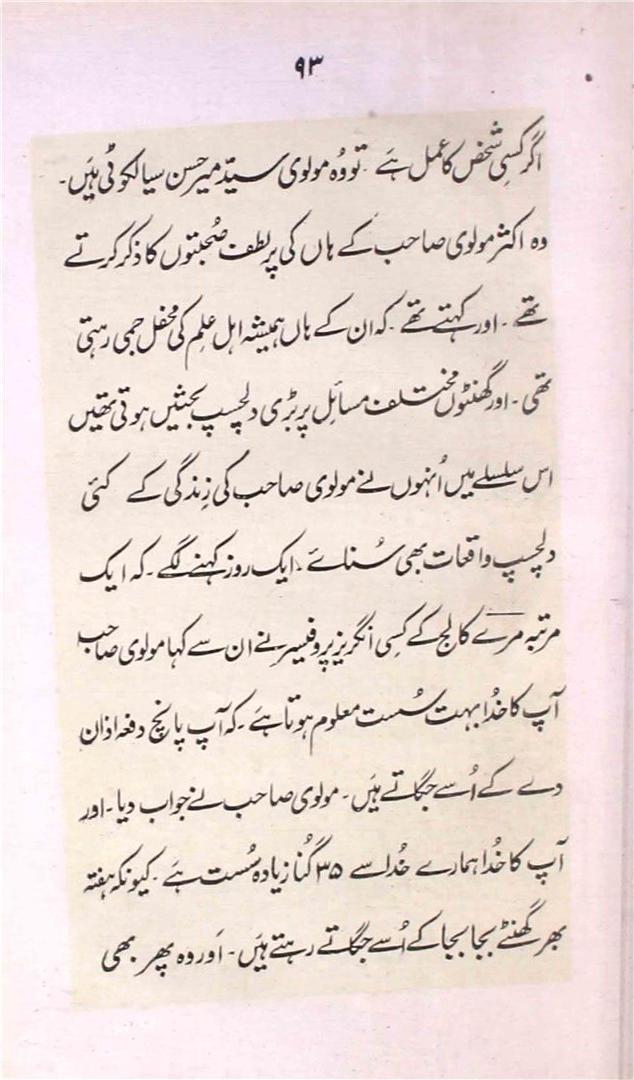 ۹۳
اگر کسِی شخص کا عمل ہَے ۔ تو وُہ مولوی سیدّ میر حسن سیالکوٹی ہیَں۔
وہ اکثر مولوی صاحب کے ہاں کی پر لطف صُحبتوں کا ذکر کرتے
تھے ۔ اور کہتے تھے ۔ کہ ان کے ہاں ہمیشہ اہل عِلم کی محفل جمی رہتی
تھی ۔ اور گھنٹوں مختلف مسائل پر بڑی دلچسپ بحثیں ہوتی تھیں
اس سلسلے میں اُنہوں نے مولوی صاحب کی زِندگی کے کئی
دلچسپ واقعات بھی سُنائے ۔ ایک روز کہنے لگے ۔ کہ ایک
مرتبہ مرے کالج کے کسِی انگریز پروفیسر نے ان سے کہا مولوی صاحب
آپ کا خدُا بہت سُست معلوم ہوتا ہَے ۔ کہ آپ پانچ دفعہ اذان
دے کے اُسے جگاتے ہیَں ۔ مولوی صاحب نے جواب دیا ۔ اور
آپ کا خدُا ہمارے خدُا سے ۳۵ گُنا زیادہ سُست ہَے ۔ کیونکہ ہفتہ
بھر گھنٹے بجا بجا کے اُسے جگاتے رہتے ہیَں ۔ اَور وہ پھر بھی